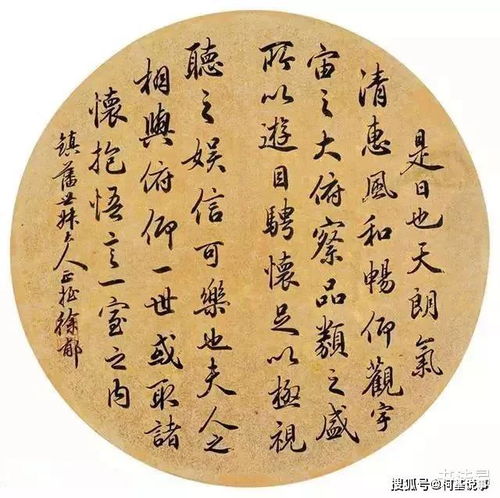 是日也天朗氣
清惠風和暢仰觀宇
宙之大俯察品類之盛
所以遊目騁懷足以極視
聽之娛信可樂也夫人之
相與俯仰一世或取諸
懷抱悟言一室之内
鎮藩世妹夫人正徐郙
搜狐号@柯基说事